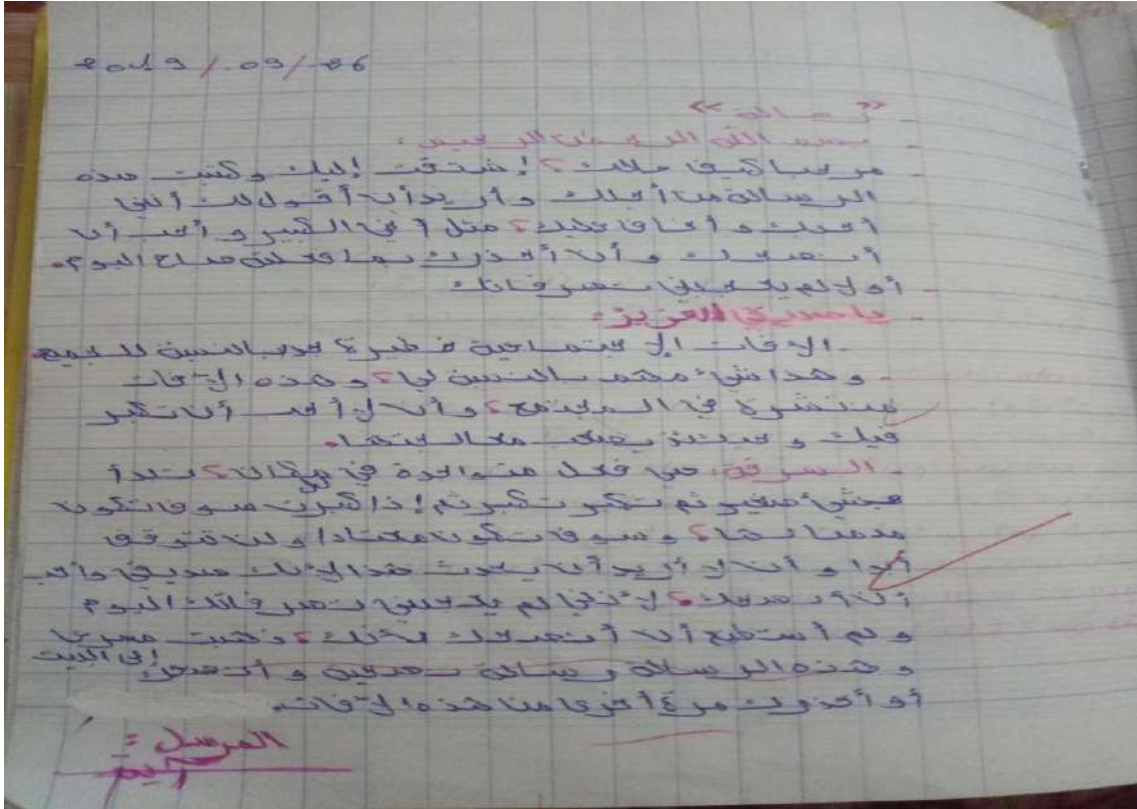 2019/09/26
" رسالة "
بسم الله الرحمن الرحيم:
مرحبا كيف حالك؟ إشتقت إليك وكتبت هده
الرسالة من أجلك وأريد أن أقول لك أنني
أحبك وأخاف عليك؟ مثل أخي الكبير و أحب أن
أنصحك و أن أحذرك بما فعلته صباح اليوم.
أولا لم يعجبني تصرفاتك
يا صديقي العزيز:
- الافات الإجتماعية خطيرة جدا بالنسبة للجميع.
- وهدا شيء مهم بالنسبة لي؟ و هذه الآفات
منتشرة في المجتمع؟ و أن لا أحب أن تكبر
فيك و حينئذ يصعب معالجتها.
- السرقة: هي فعل متواجدة في مكان؟ تبدأ
بشيء صغير ثم تكبر تكبر ثم إذا كبرت سوف تكون
مدمنا لها؟ و سوف تكون معتادا و لن تتوقف
أبدا و أن لا أريد أن يحدث هدا لأنك صديقي وأحب
أن؟ لأنني لم يعجبني تصرفاتك اليوم
و لم أستطع أن أنصحك لأنك؟ ذهبت مسرعا
إلى البيت
و هذه الرسالة رسالة و أنصحك
أو أحذرك مرة أخرى من هذه الآفات.
المرسل: